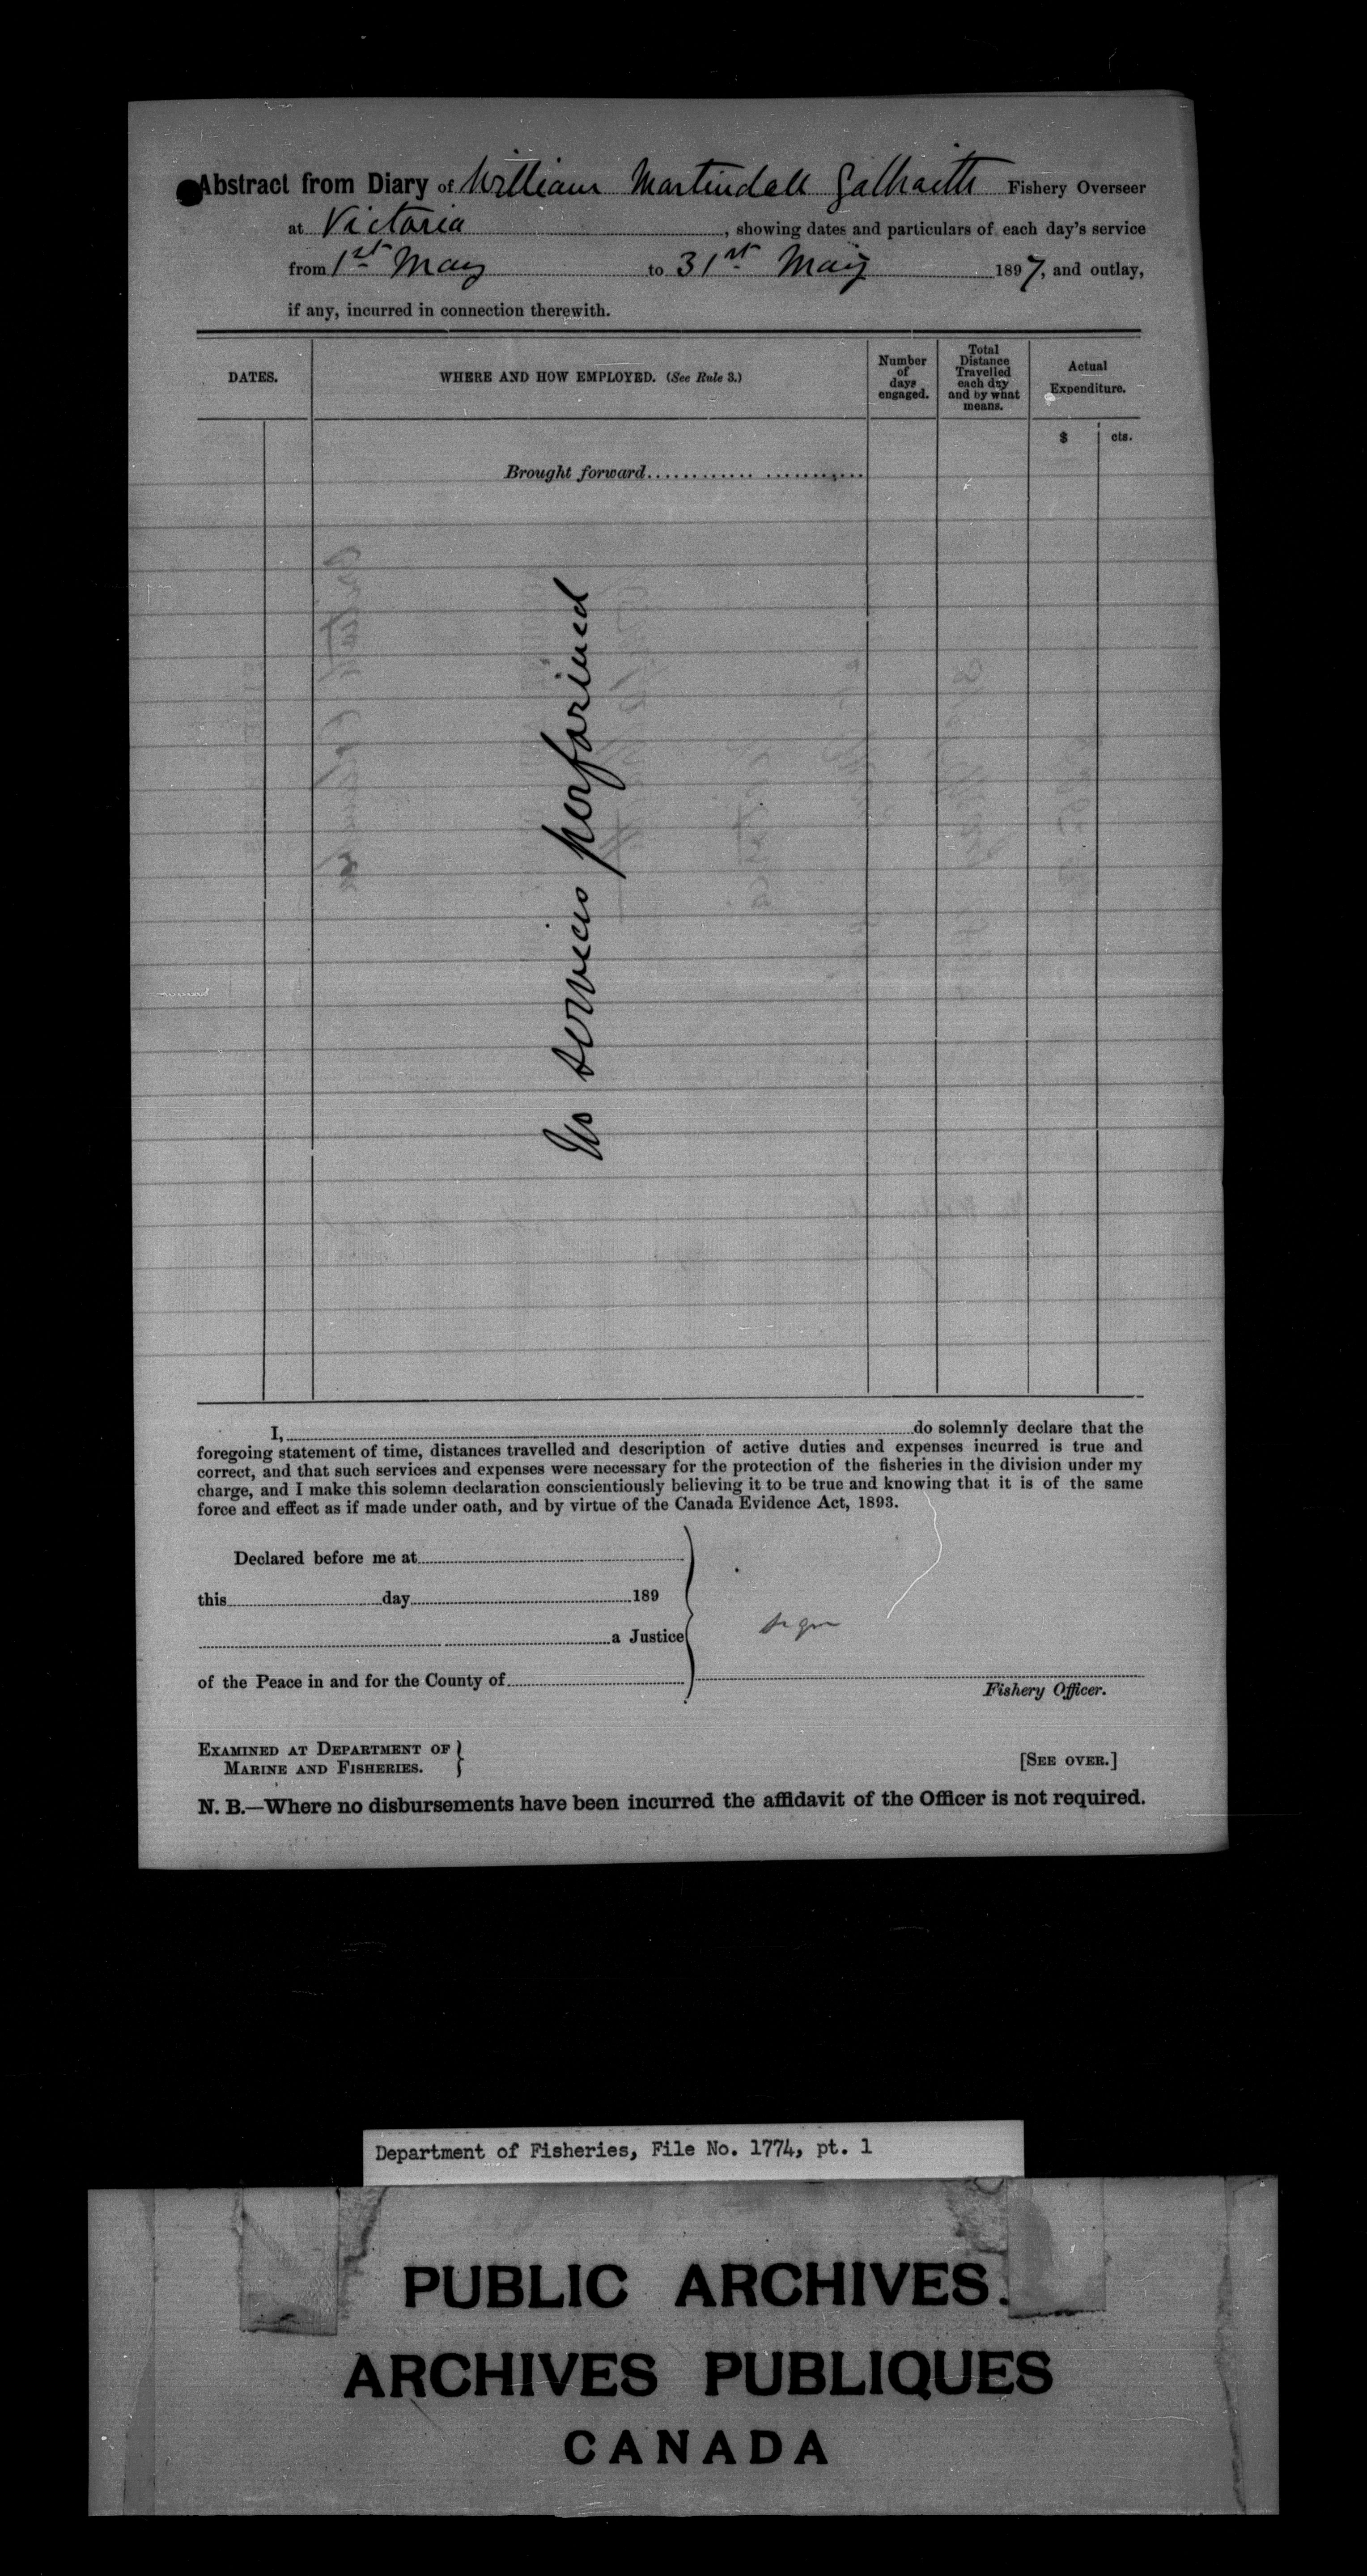 Abstract from Diary of William Martindale Galbraith Fishery Overseer
at Victoria, showing dates and particulars of each day's service
from 1st May to 31st May 1897, and outlay,
if any, incurred in connection therewith.
DATES.
WHERE AND HOW EMPLOYED. (See Rule 3.)
Number
of
days
engaged.
Total
Distance
Travelled
each day
and by what
means.
Actual
Expenditure.
$ cts.
Brought forward
No services performed
I, do solemnly declare that the
foregoing statement of time, distances travelled and description of active duties and expenses incurred is true and
correct, and that such services and expenses were necessary for the protection of the fisheries in the division under my
charge, and I make this solemn declaration conscientiously believing it to be true and knowing that it is of the same
force and effect as if made under oath, and by virtue of the Canada Evidence Act, 1893.
Declared before me at
this day 189
a Justice
of the Peace in and for the County of
Fishery Officer.
EXAMINED AT DEPARTMENT OF
MARINE AND FISHERIES.
[SEE OVER.]
N. B.—Where no disbursements have been incurred the affidavit of the Officer is not required.
Department of Fisheries, File No. 1774, pt. 1
PUBLIC ARCHIVES.
ARCHIVES PUBLIQUES
CANADA